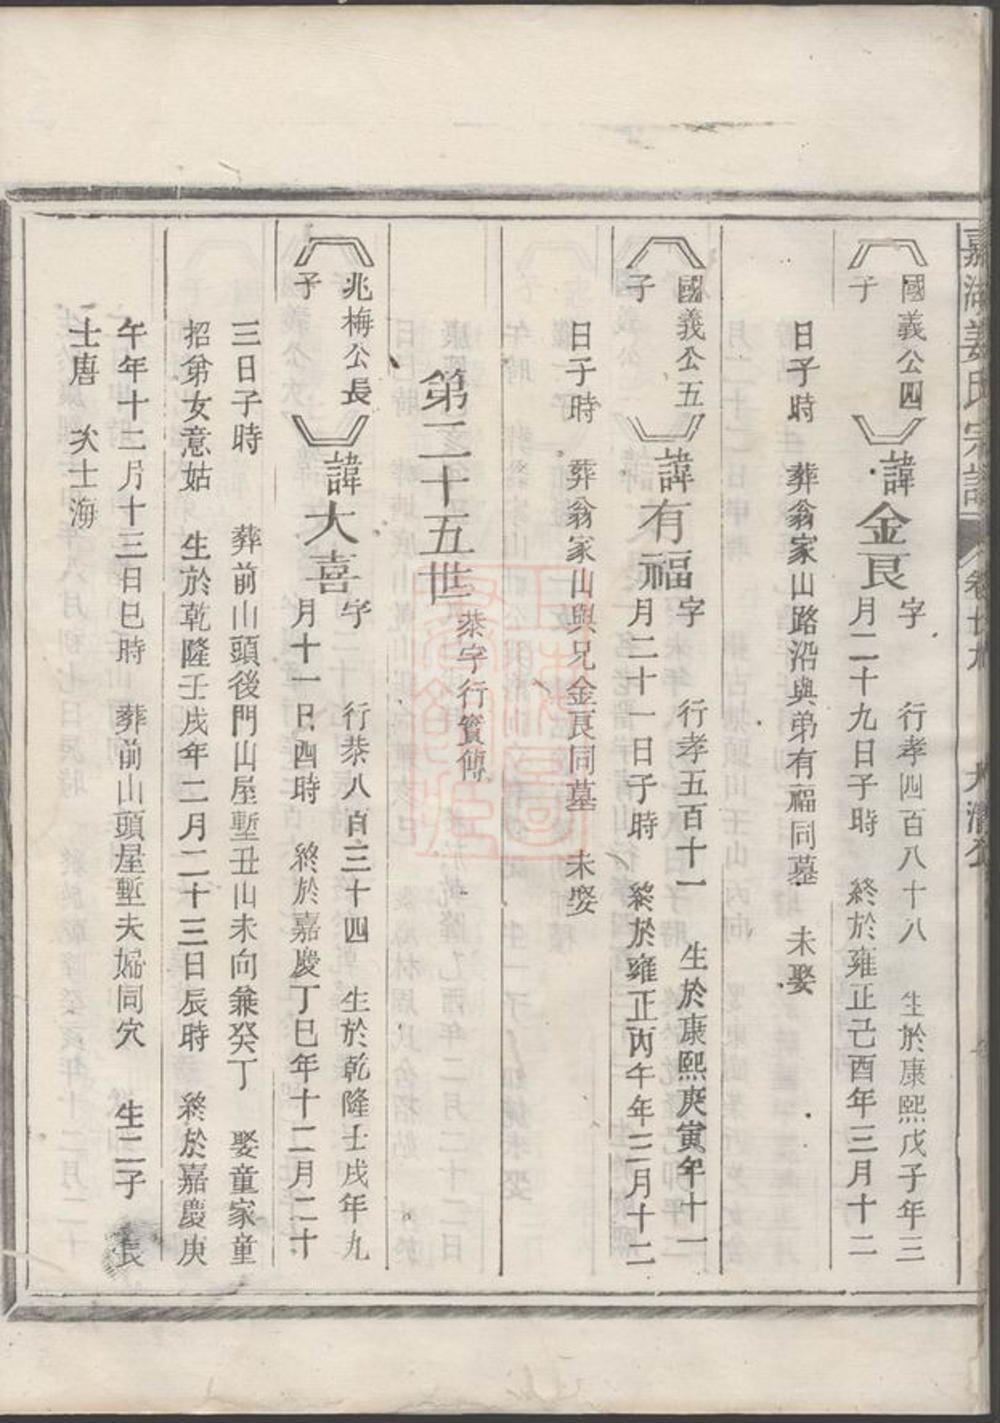 嘉湖姜氏宗譜 卷廿九 大清公
國義公四子 諱金良 字 行孝四百八十八 生於康熙戊子年三
月二十九日子時 終於雍正己酉年三月十二
日子時 葬翁家山路沿與弟有福同墓 未娶
國義公五子 諱有福 字 行孝五百十一 生於康熙庚寅年十一
月二十一日子時 終於雍正丙午年三月十二
日子時 葬翁家山與兄金良同墓 未娶
第二十五世 恭字行實傳
兆梅公長子 諱大喜 字 行恭八百三十四 生於乾隆壬戌年九
月十一日酉時 終於嘉慶丁巳年十二月二十
三日子時 葬前山頭後門山屋塹丑山未向兼癸丁 娶童家童
招弟女意姑 生於乾隆壬戌年二月二十三日辰時 終於嘉慶庚
午年十二月十三日巳時 葬前山頭屋塹夫婦同穴 生二子 長
士唐 次士海